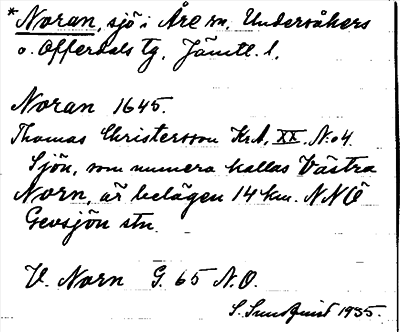 *Noran, sjö i Åre sn, Undersåkers
o. Offerdals tg, Jämtl. l.
Noran 1645.
Thomas Christersson KrA, XX, No4.
Sjön, som numera kallas Västra
Norn, är belägen 14 km. NNÖ
Gevsjön stn.
V. Norn G. 65 N.O.
S. Sundquist 1935.